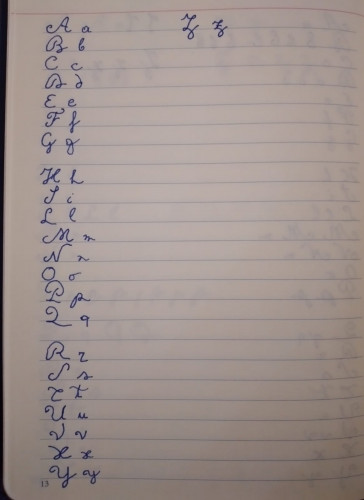 A a Z z
B b
C c
D d
E e
F f
G g
H h
I i
L l
M m
N n
O o
P p
Q q
R r
S s
T t
U u
V v
X x
Y y
13